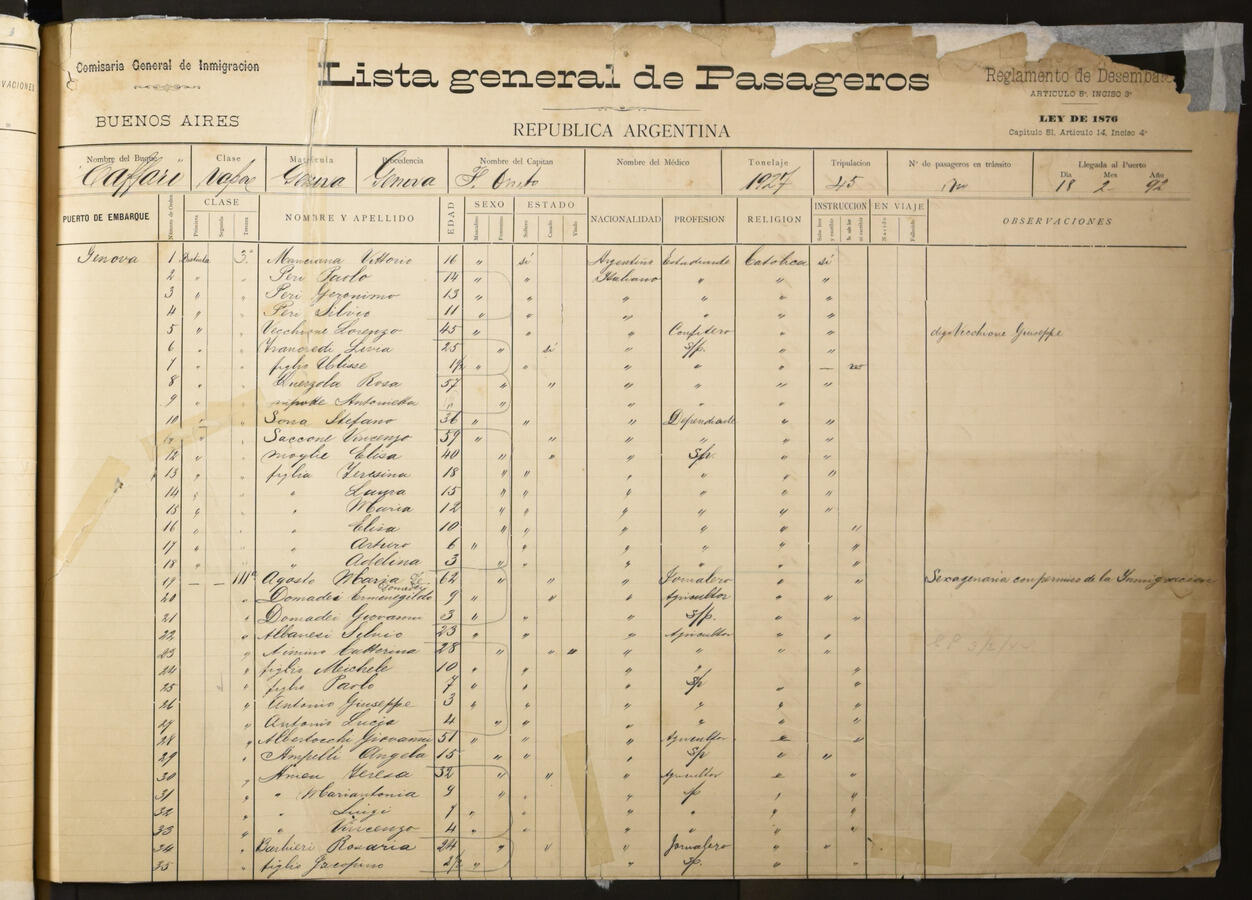 VACIONES
Comisaria General de Inmigracion
BUENOS AIRES
Lista general de Pasageros
REPUBLICA ARGENTINA
Reglamento de Desemba
ARTICULO 8º, INCISO 3º
LEY DE 1876
Capítulo 81, Artículo 14, Inciso 4º
Nombre del Buque Clase Matrícula Procedencia Nombre del Capitan Nombre del Médico Tonelaje Tripulacion Nº de pasageros en tránsito Llegada al Puerto
Dia Mes Año
"Caffaro" Vapor Genova Genova 1927 45 18 2 92
PUERTO DE EMBARQUE Número de Orden CLASE NOMBRE Y APELLIDO EDAD SEXO ESTADO NACIONALIDAD PROFESION RELIGION INSTRUCCION EN VIAJE OBSERVACIONES
Primera Segunda Tercera Masculino Femenino Soltero Casado Viudo Nacido Fallecido
Genova 1 3ª Vittorio 16 " si Argentino Estudiante Catolica si
2 " " Peri Paolo 14 " " Italiano " " "
3 " " Peri Geronimo 13 " " " " " "
4 " " Peri Silvio 11 " " " " " "
5 " " Vecchione Lorenzo 45 " " " Confitero " " digo Vecchione Giuseppe
6 " " Livia 25 " si " S/p. " "
7 " " figlio Ulisse 1½ " " " " " — no
8 " " Rosa 57 " " " " " "
9 " " nipote Antonietta " " " " "
10 " " Stefano 36 " " " Dependiente " "
11 " " Saccone Vincenzo 59 " " " " " "
12 " " moglie Elisa 40 " " " S/p. " "
13 " " figlia Teresina 18 " " " " " "
14 " " " Laura 15 " " " " " "
15 " " " Maria 12 " " " " " "
16 " " " Elisa 10 " " " " " "
17 " " " Arturo 6 " " " " " "
18 " " " Adelina 3 " " " " " "
19 — — IIIª Agosto Maria 62 " " " Jornalero " " Sexagenaria con permiso de la Inmigracion
20 " Domadei Ermenegildo 9 " " " Agricultor " "
21 " Domadei Giovanni 3 " " " S/p. " "
22 " Albanesi Silvio 23 " " " Agricultor " "
23 " Catterina 28 " " " " " " "
24 " figlio Meichele 10 " " " " "
25 " figlio Paolo 7 " " S/p " "
26 " Antonio Giuseppe 3 " " " " "
27 " Antonio Lucia 4 " " " " "
28 " Giovanni 51 " " " Agricultor " "
29 " Angela 15 " " " S/p " "
30 " Teresa 32 " " " Agricultor " "
31 " " Mariantonia 9 " " " "
32 " " Luigi 7 " " " " "
33 " " Vincenzo 4 " " " " "
34 " Barbieri Rosaria 24 " " " Jornalero " "
35 " figlio " " S/p. " "